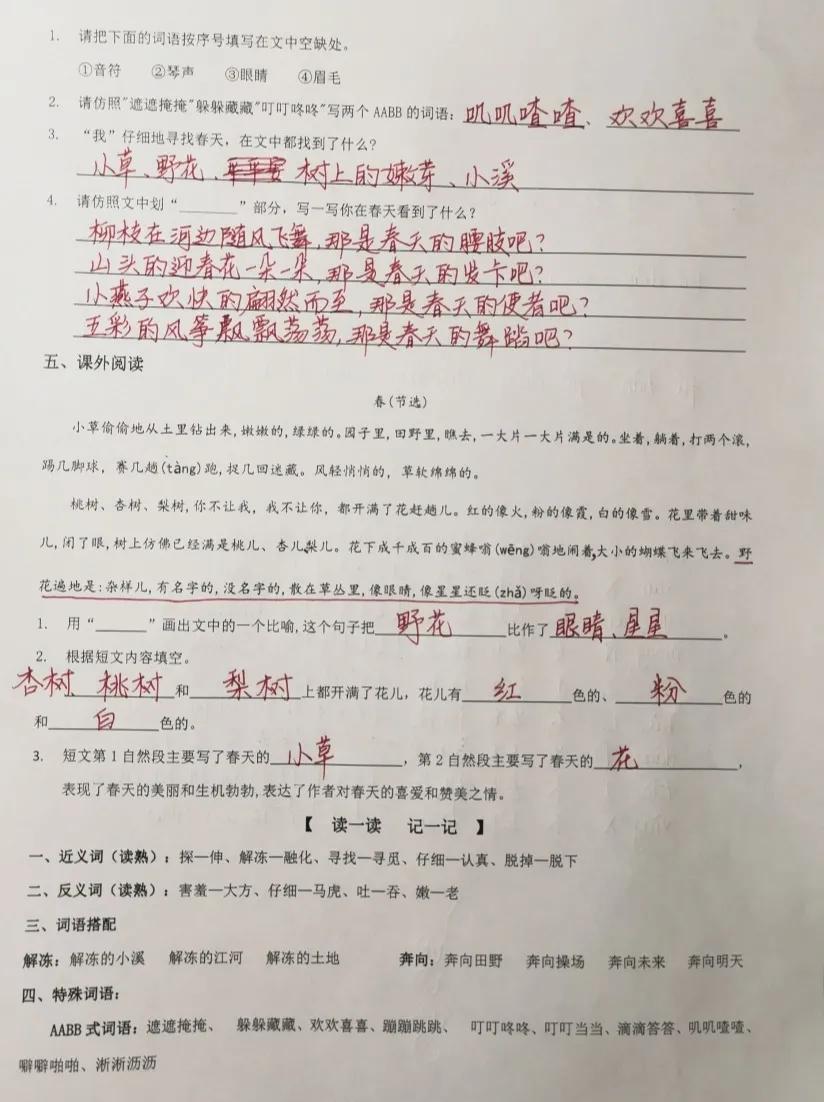 1. 请把下面的词语按序号填写在文中空缺处。
①音符 ②琴声 ③眼睛 ④眉毛
2. 请仿照"遮遮掩掩"躲躲藏藏"叮叮咚咚"写两个AABB的词语:叽叽喳喳、欢欢喜喜
3. “我”仔细地寻找春天,在文中都找到了什么?
小草、野花、树上的嫩芽、小溪
4. 请仿照文中划“______”部分,写一写你在春天看到了什么?
柳枝在河边随风飞舞,那是春天的腰肢吧?
山头的迎春花一朵一朵,那是春天的发卡吧?
小燕子欢快的翩然而至,那是春天的使者吧?
五彩的风筝飘飘荡荡,那是春天的舞蹈吧?
五、课外阅读
春(节选)
小草偷偷地从土里钻出来,嫩嫩的,绿绿的。园子里,田野里,瞧去,一大片一大片满是的。坐着,躺着,打两个滚,
踢几脚球,赛几趟(tàng)跑,捉几回迷藏。风轻悄悄的,草软绵绵的。
桃树、杏树、梨树,你不让我,我不让你,都开满了花赶趟儿。红的像火,粉的像霞,白的像雪。花里带着甜味
儿,闭了眼,树上仿佛已经满是桃儿、杏儿,梨儿。花下成千成百的蜜蜂嗡(wēng)嗡地闹着,大小的蝴蝶飞来飞去。野
花遍地是:杂样儿,有名字的,没名字的,散在草丛里,像眼睛,像星星还眨(zhǎ)呀眨的。
1. 用“______”画出文中的一个比喻,这个句子把野花比作了眼睛、星星。
2. 根据短文内容填空。
杏树、桃树和梨树上都开满了花儿,花儿有红色的、粉色的
和白色的。
3. 短文第1自然段主要写了春天的小草,第2自然段主要写了春天的花,
表现了春天的美丽和生机勃勃,表达了作者对春天的喜爱和赞美之情。
【 读一读 记一记 】
一、近义词(读熟):探—伸、解冻—融化、寻找—寻觅、仔细—认真、脱掉—脱下
二、反义词(读熟):害羞—大方、仔细—马虎、吐—吞、嫩—老
三、词语搭配
解冻:解冻的小溪 解冻的江河 解冻的土地 奔向:奔向田野 奔向操场 奔向未来 奔向明天
四、特殊词语:
AABB式词语:遮遮掩掩、 躲躲藏藏、欢欢喜喜、蹦蹦跳跳、 叮叮咚咚、叮叮当当、滴滴答答、叽叽喳喳、
噼噼啪啪、淅淅沥沥